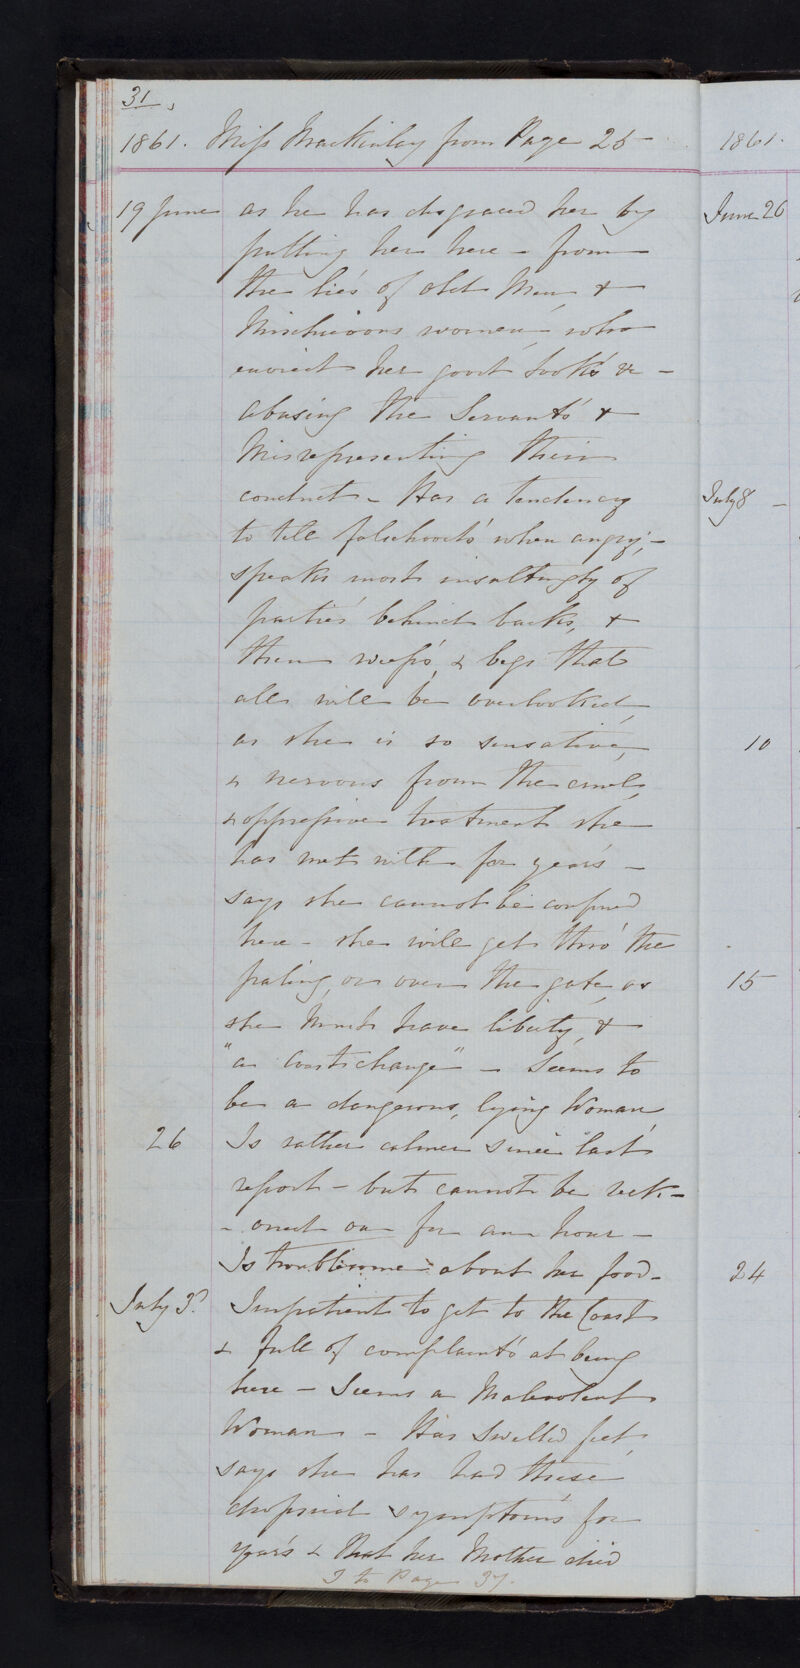 31,
1861. Miss Mackinlay from Page 25
19 June as he has disgraced her by
putting her here – from
the lie's of old Men &
Mischievous women, who
envied her good looks &c –
abusing the Servant's &
Misrepresenting their
conduct – Has a tendency
to tell falsehood's when angry, –
speaks most insultingly of
partie's behind backs, &
then weep's, & begs that
all will be overlooked,
as she is so sensative,
& nervous from the cruel,
& oppressive treatment she
has met with for year's –
says she cannot be confined
here – she will get thro' the
paling, or over the gate, as
she must have liberty, &
"a Coast change" – Seems to
be a dangerous, lying Woman,
26 Is rather calmer since last
report – but cannot be reck-
- oned on for an hour –
Is troublesome about her food –
July 3d. Impatient to get to the Coast
& full of complaint's at being
here – Seems a Malevolent
Woman – Has Swelled feet,
says she has had these
dropsical symptom's for
year's & that her Mother died
T to Page 37.
1861.
June 26
July 8 –
10
15
24